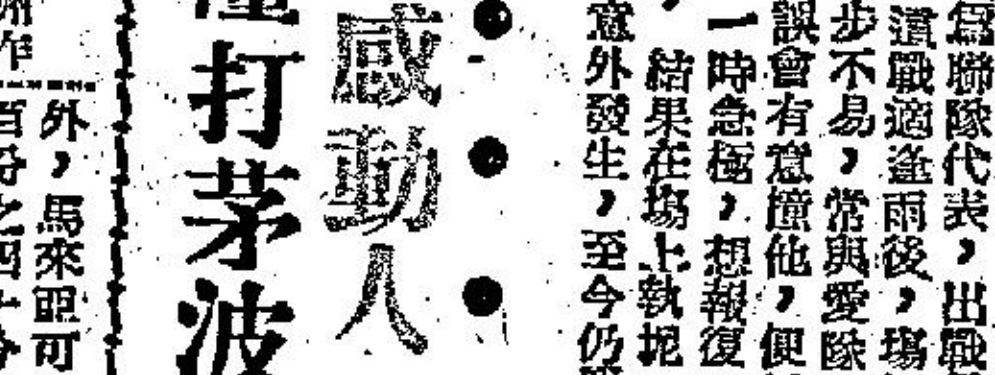 爲聯隊代表，出戰
遺戰適逢雨後，塲
步不易，常與愛隊
誤會有意撞他，便
一時急極，想報復
，結果在塲上執坭
意外發生，至今仍
感動人
打茅波
外，馬來亞可
百份之四十分
州作